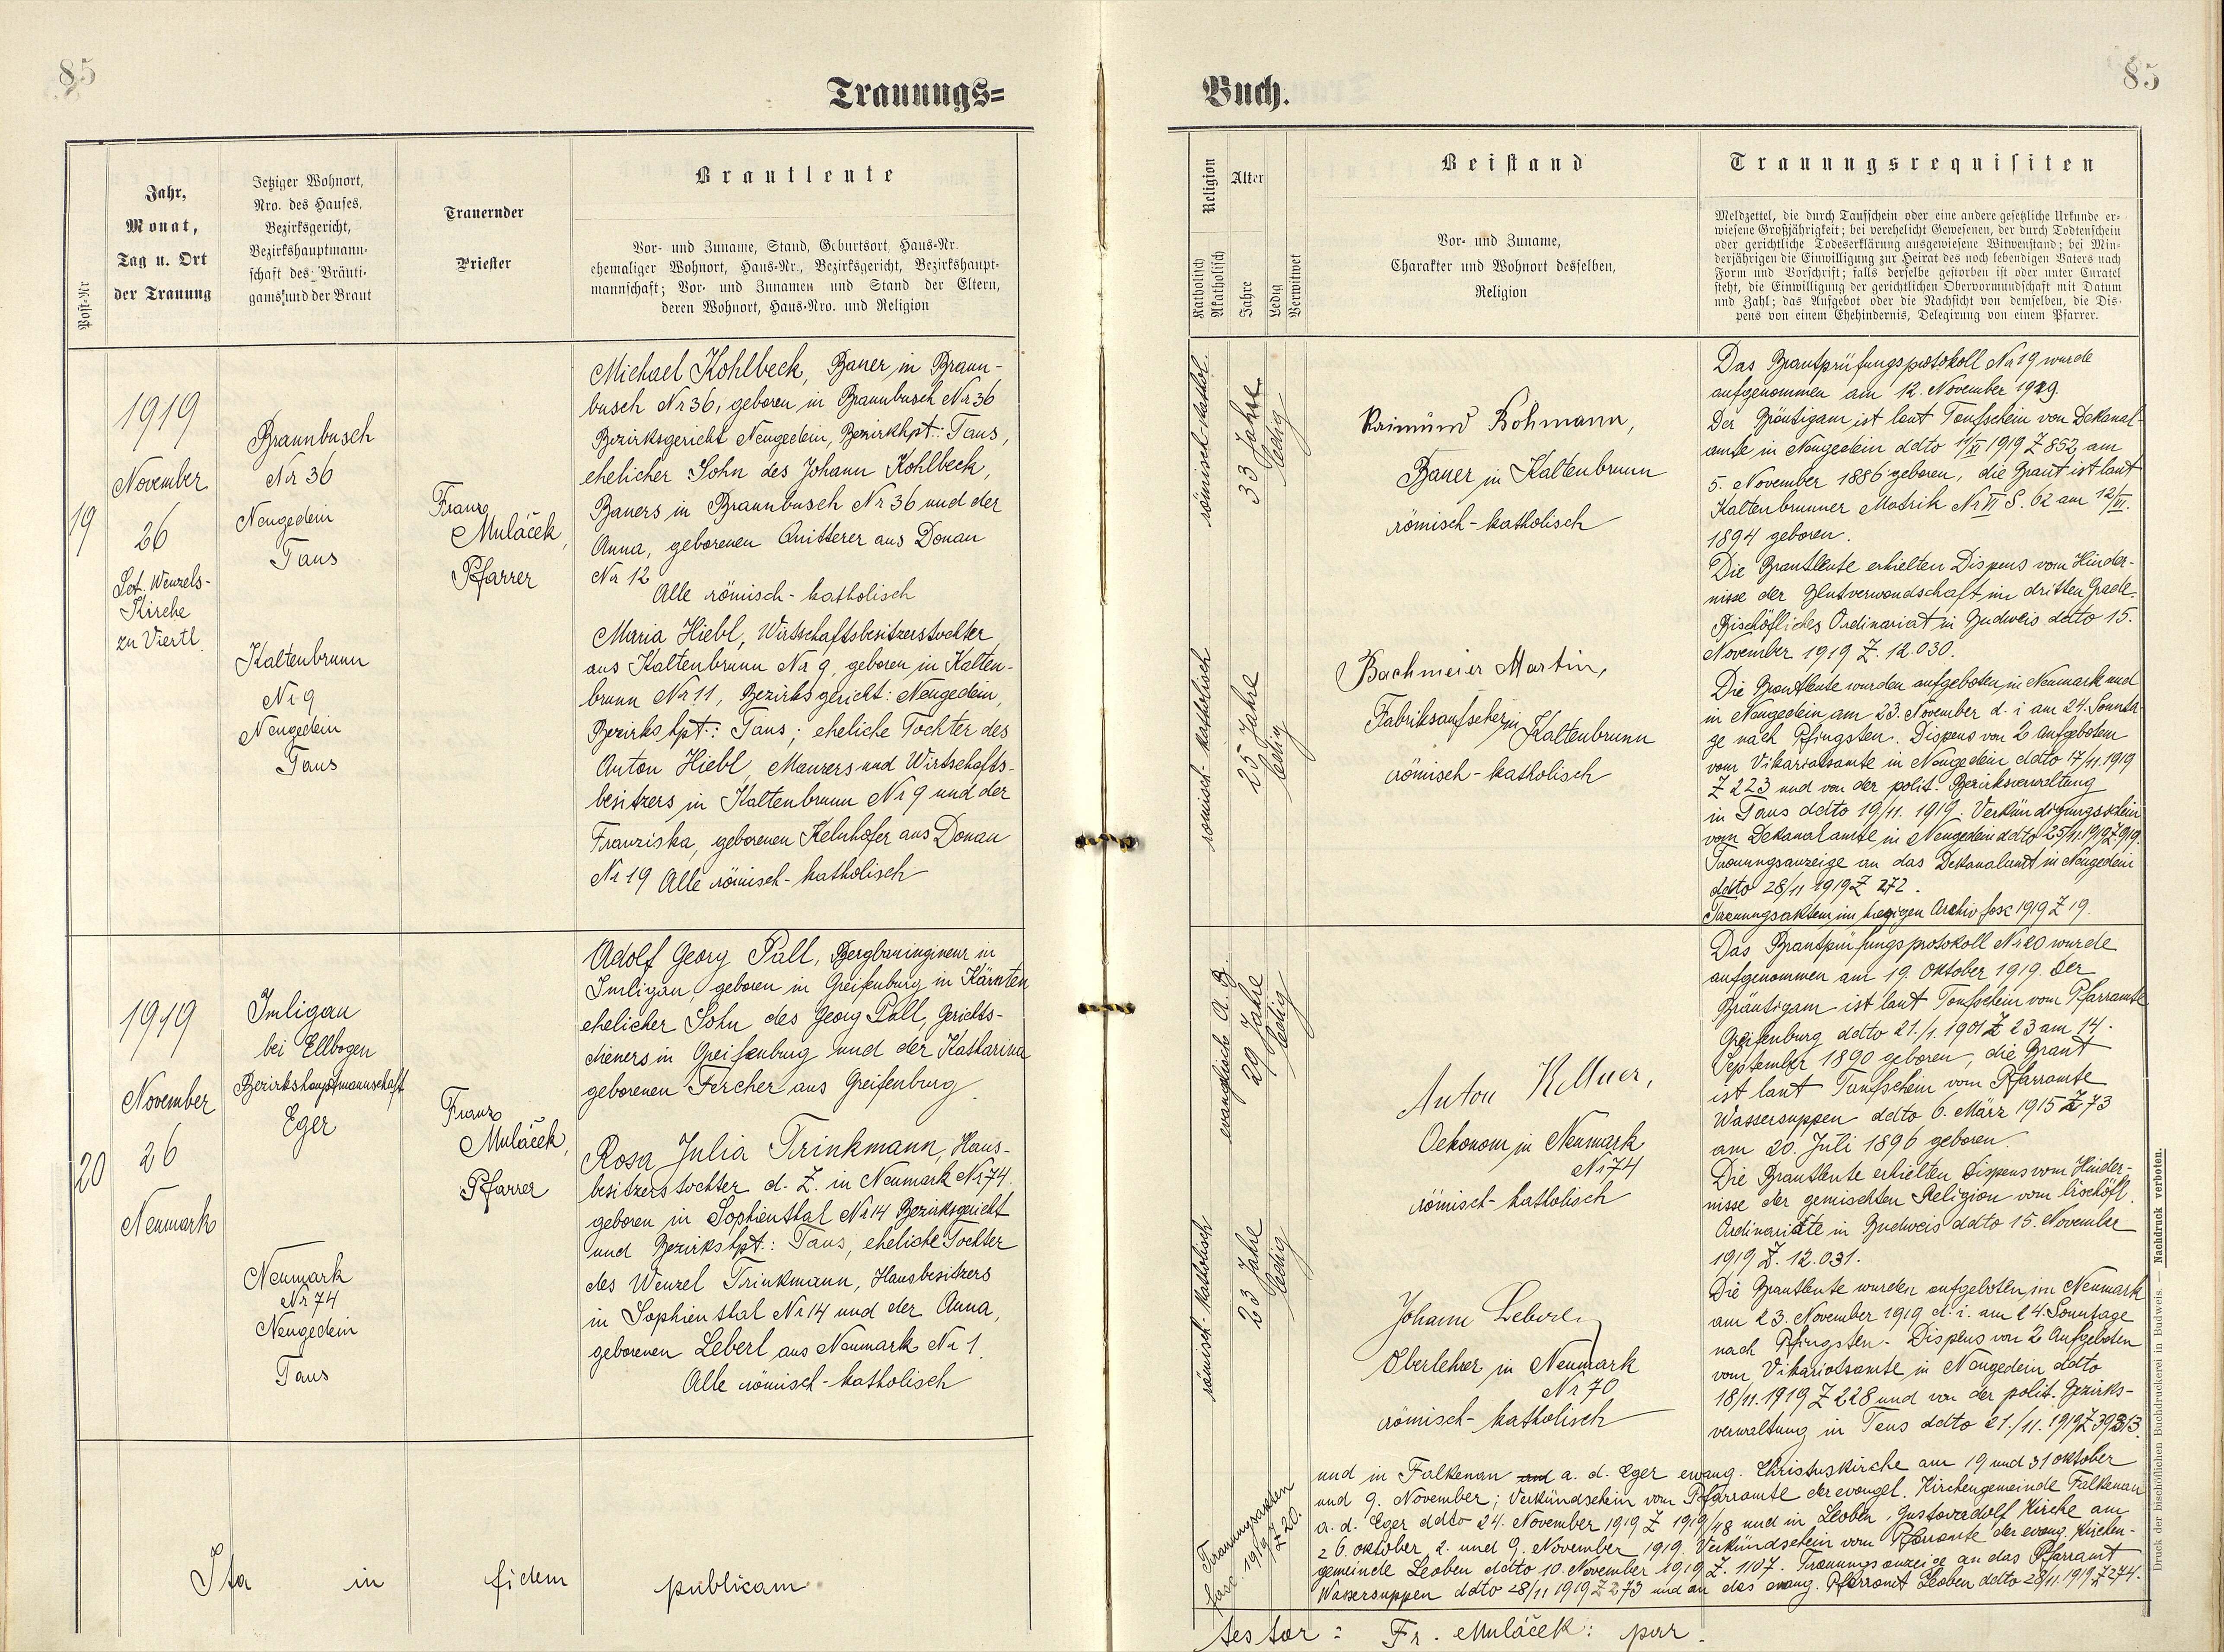 85
Trauungs=
Buch.
85
Post-Nr
Jahr,
Monat,
Tag u. Ort
der Trauung
Jetziger Wohnort,
Nro. des Hauses,
Bezirksgericht,
Bezirkshauptmann-
schaft des Bräuti-
gams und der Braut
Trauernder
Priester
Brautleute
Vor- und Zuname, Stand, Geburtsort, Haus-Nr.
ehemaliger Wohnort, Haus-Nr., Bezirksgericht, Bezirkshaupt-
mannschaft; Vor- und Zunamen und Stand der Eltern,
deren Wohnort, Haus-Nro. und Religion
Religion
Katholisch
Akatholisch
Alter
Jahre
Ledig
Verwitwet
Beistand
Vor- und Zuname,
Charakter und Wohnort desselben,
Religion
Trauungsrequisiten
Meldzettel, die durch Taufschein oder eine andere gesetzliche Urkunde er-
wiesene Großjährigkeit; bei verehelicht Gewesenen, der durch Todtenschein
oder gerichtliche Todeserklärung ausgewiesene Witwenstand; bei Min-
derjährigen die Einwilligung zur Heirat des noch lebendigen Vaters nach
Form und Vorschrift; falls derselbe gestorben ist oder unter Curatel
steht, die Einwilligung der gerichtlichen Obervormundschaft mit Datum
und Zahl; das Aufgebot oder die Nachsicht von demselben, die Dis-
pens von einem Ehehindernis, Delegirung von einem Pfarrer.
19
1919
November
26
Sct. Wenzels-
Kirche
zu Viertl.
Braunbusch
Nr 36
Neugedein
Taus
Kaltenbrunn
Nr 9
Neugedein
Taus
Franz
Muláček,
Pfarrer
Michael Kohlbeck, Bauer in Braun-
busch Nr 36, geboren in Braunbusch Nr 36
Bezirksgericht Neugedein, Bezirkhpt.: Taus,
ehelicher Sohn des Johann Kohlbeck,
Bauers in Braunbusch Nr 36 und der
Anna, geborenen Quitterer aus Donau
Nr 12
Alle römisch-katholisch
Maria Hiebl, Wirtschaftsbesitzerstochter
aus Kaltenbrunn Nr 9, geboren in Kalten-
brunn Nr 11, Bezirksgericht: Neugedein,
Bezirkshpt.: Taus; eheliche Tochter des
Anton Hiebl, Maurers und Wirtschafts-
besitzers in Kaltenbrunn Nr 9 und der
Franziska, geborenen Kelnhofer aus Donau
Nr 19 Alle römisch-katholisch
römisch-kathol.
33 Jahre
ledig
römisch-katholisch
25 Jahre
ledig
Raimund Bohmann,
Bauer in Kaltenbrunn
römisch-katholisch
Bachmeier Martin,
Fabriksaufseher in Kaltenbrunn
römisch-katholisch
Das Brautprüfungsprotokoll Nr 19 wurde
aufgenommen am 12. November 1919.
Der Bräutigam ist laut Taufschein von Dekanal-
amte in Neugedein ddto 11/XI 1919 Z 852 am
5. November 1886 geboren, die Braut ist laut
Kaltenbrunner Matrik Nr VI S. 62 am 12/VI.
1894 geboren.
Die Brautleute erhielten Dispens vom Hinder-
nisse der Blutverwandschaft im dritten Grade.
Bischöfliches Ordinariat in Budweis ddto 15.
November 1919 Z. 12.030.
Die Brautleute wurden aufgeboten in Neumark und
in Neugedein am 23. November d. i am 24. Sonnta-
ge nach Pfingsten. Dispens von 2 Aufgeboten
vom Vikariatsamte in Neugedein ddto 17/11. 1919
Z 223 und von der polit. Bezirksverwaltung
in Taus ddto 19/11. 1919. Verkündigungsschein
vom Dekanalamte in Neugedein ddto 25/11. 1919 Z 919.
Trauungsanzeige an das Dekanalamt in Neugedein
ddto 28/11 1919 Z 272.
Trauungsakten im hiesigen Archiv fasc 1919 Z 19.
20
1919
November
26
Neumark
Imligau
bei Ellbogen
Bezirkshauptmannschaft
Eger
Neumark
Nr 74
Neugedein
Taus
Franz
Muláček,
Pfarrer
Adolf Georg Pall, Bergbauingineur in
Imligau, geboren in Greifenburg in Kärnten
ehelicher Sohn des Georg Pall, Gerichts-
dieners in Greifenburg und der Katharina
geborenen Fercher aus Greifenburg.
Rosa Julia Trinkmann, Haus-
besitzerstochter d. Z. in Neumark Nr 74.
geboren in Sophienthal Nr 14 Bezirksgericht
und Bezirkshpt.: Taus, eheliche Tochter
des Wenzel Trinkmann, Hausbesitzers
in Sophienstal Nr 14 und der Anna,
geborenen Leberl aus Neumark Nr 1.
Alle römisch-katholisch
evanglische A. B.
29 Jahre
ledig
römisch-katholisch
23 Jahre
ledig
Anton Kellner,
Oekonom in Neumark
Nr 74
römisch-katholisch
Johann Leberl
Oberlehrer in Neumark
Nr 70
römisch-katholisch
Das Brautprüfungsprotokoll Nr 20 wurde
aufgenommen am 19. Oktober 1919. Der
Bräutigam ist laut Taufschein vom Pfarramte
Greifenburg ddto 21./1. 1901 Z 23 am 14.
September 1890 geboren, die Braut
ist laut Taufschein vom Pfarramte
Wassersuppen ddto 6. März 1915 Z 73
am 20. Juli 1896 geboren.
Die Brautleute erhielten Dispens vom Hinder-
nisse der gemischten Religion vom bischöfl.
Ordinariate in Budweis ddto 15. November
1919 Z. 12.031.
Die Brautleute wurden aufgeboten im Neumark
am 23. November 1919 d. i. am 24. Sonntage
nach Pfingsten. Dispens von 2 Aufgeboten
vom Vikariatsamte in Neugedein ddto
18/11. 1919 Z 228 und von der polit. Bezirks-
verwaltung in Taus ddto 21./11. 1919 Z 39313.
und in Falkenau and a. d. Eger evang. Christuskirche am 19 und 31 Oktober
und 9. November; Verkündschein vom Pfarramte der evangel. Kirchengemeinde Falkenau
a. d. Eger ddto 24. November 1919 Z 1919/48 und in Leoben, Gustavadolf Kirche am
26. Oktober, 2. und 9. November 1919. Verkündschein vom Pfarramte der evang. Kirchen-
gemeinde Leoben ddto 10. November 1919 Z. 1107. Trauungsanzeige an das Pfarramt
Wassersuppen ddto 28/11 1919 Z 273 und an das evang. Pfarramt Leoben ddto 28/11. 1919 Z 274.
Trauungsakten
fasc. 1919 Z 20.
Ita in fidem publicam
testor: Fr. Muláček: par.
Druck der bischöflichen Buchdruckerei in Budweis. — Nachdruck verboten.